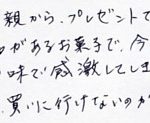 親から、プレゼントで
があるお菓子で、今
味で感激してしま
買いに行けないのが